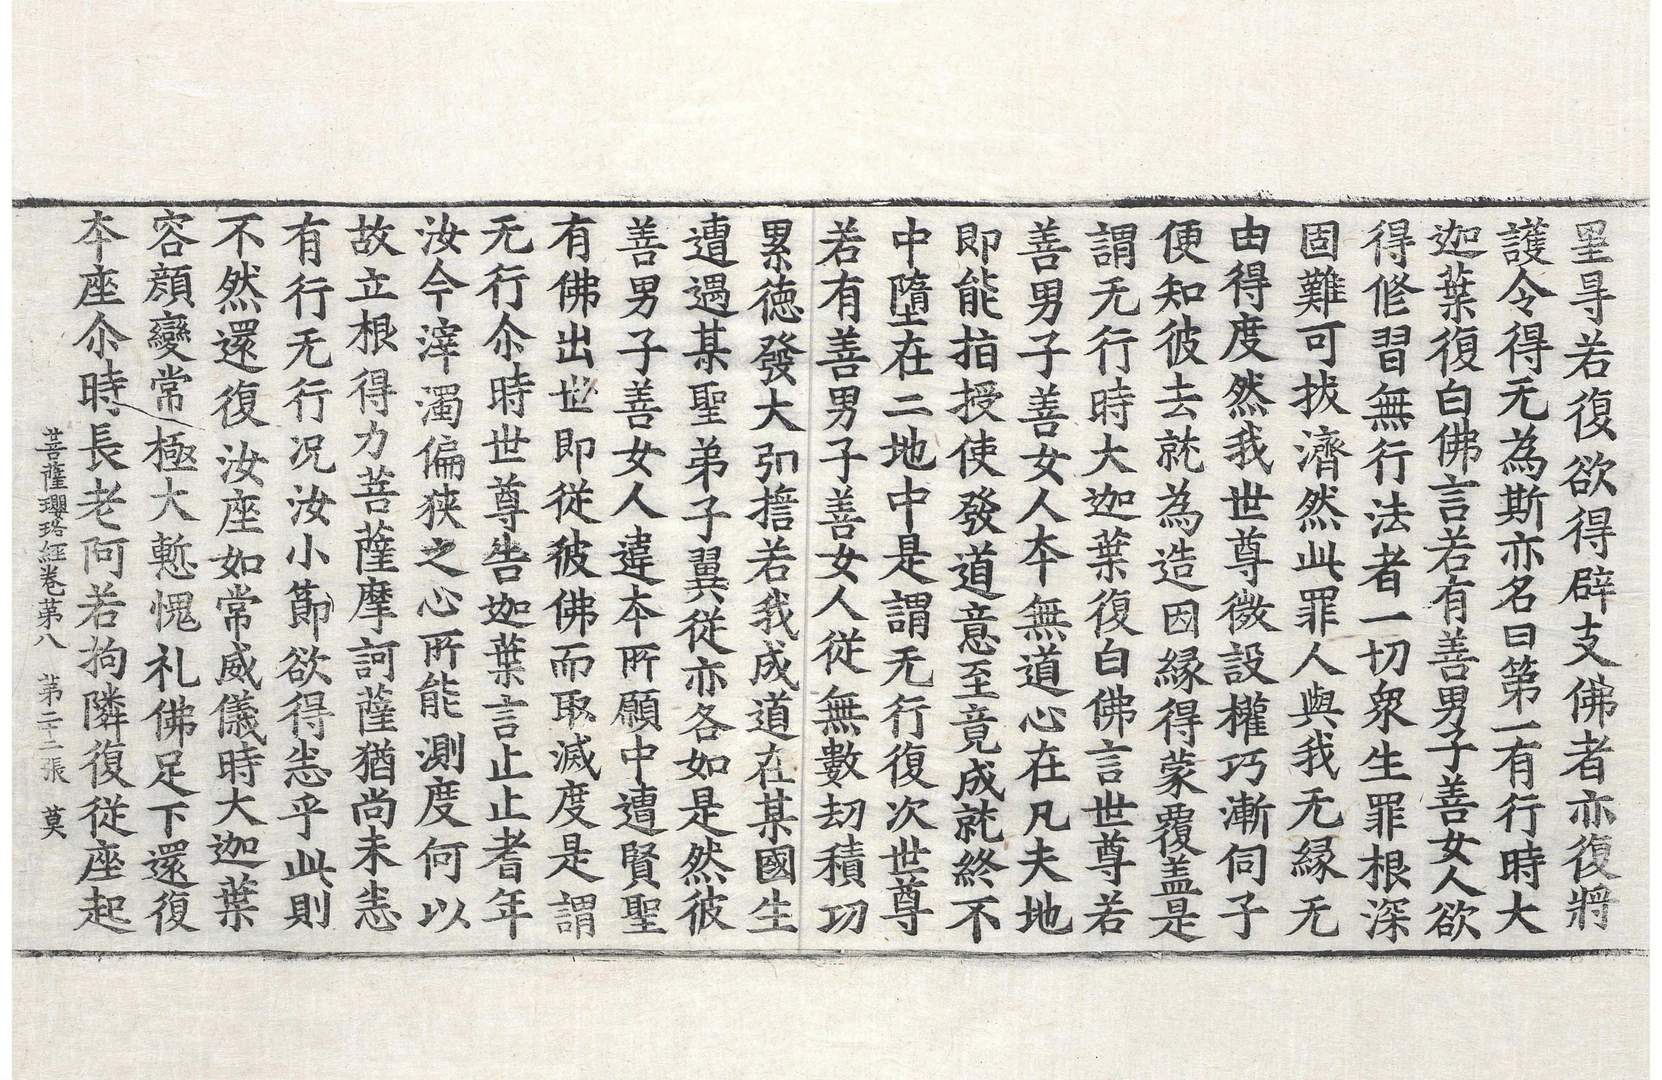 里㝵若復欲得辟支佛者亦復將
護令得无為斯亦名曰第一有行時大
迦葉復白佛言若有善男子善女人欲
得修習無行法者一切衆生罪根深
固難可拔濟然此罪人與我无緣无
由得度然我世尊微設權巧漸伺子
便知彼去就為造因緣得蒙覆盖是
謂无行時大迦葉復白佛言世尊若
善男子善女人夲無道心在凡夫地
即能拍授使發道意至竟成就終不
中墮在二地中是謂无行復次世尊
若有善男子善女人從無數劫積功
累徳發大弘誓若我成道在某國生
遭遇某聖弟子翼從亦各如是然彼
善男子善女人違夲所願中遭賢聖
有佛出世即從彼佛而取滅度是謂
无行尒時世尊告迦葉言止止耆年
汝今滓濁偏狹之心所能測度何以
故立根得力菩薩摩訶薩猶尚未恙
有行无行况汝小節欲得恙乎此則
不然還復汝座如常威儀時大迦葉
容顔變常極大慙愧礼佛足下還復
夲座尒時長老阿若拘隣復從座起
菩薩瓔珞經卷苐八　苐二十二張　莫